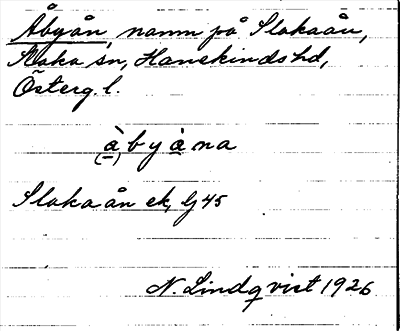 Åbyån, namn på Slakaån,
Slaka sn, Hanekinds hd,
Österg. l.
à b y å na
(–)
Slaka ån ek, Lj 45
N. Lindqvist 1926